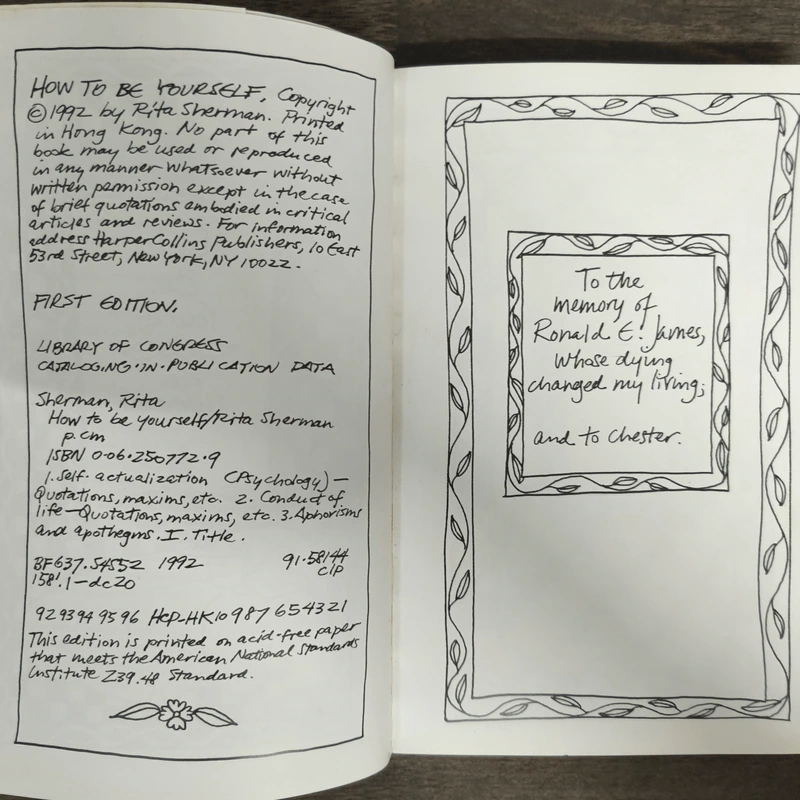 HOW TO BE YOURSELF, Copyright
© 1992 by Rita Sherman. Printed
in Hong Kong. No part of this
book may be used or reproduced
in any manner whatsoever without
written permission except in the case
of brief quotations embodied in critical
articles and reviews. For information
address HarperCollins Publishers, 10 East
53rd Street, New York, NY 10022.
FIRST EDITION.
LIBRARY OF CONGRESS
CATALOGING·IN·PUBLICATION DATA
Sherman, Rita
How to be yourself/Rita Sherman
p. cm
ISBN 0·06·250772·9
1. Self-actualization (Psychology)—
Quotations, maxims, etc. 2. Conduct of
life—Quotations, maxims, etc. 3. Aphorisms
and apothegms. I. Title.
BF637.S4S52 1992 91·58144
158'.1—dc20 CIP
92 93 94 95 96 HCP-HK 10 9 8 7 6 5 4 3 2 1
This edition is printed on acid-free paper
that meets the American National Standards
Institute Z39.48 Standard.
To the
memory of
Ronald E. James,
whose dying
changed my living;
and to Chester.